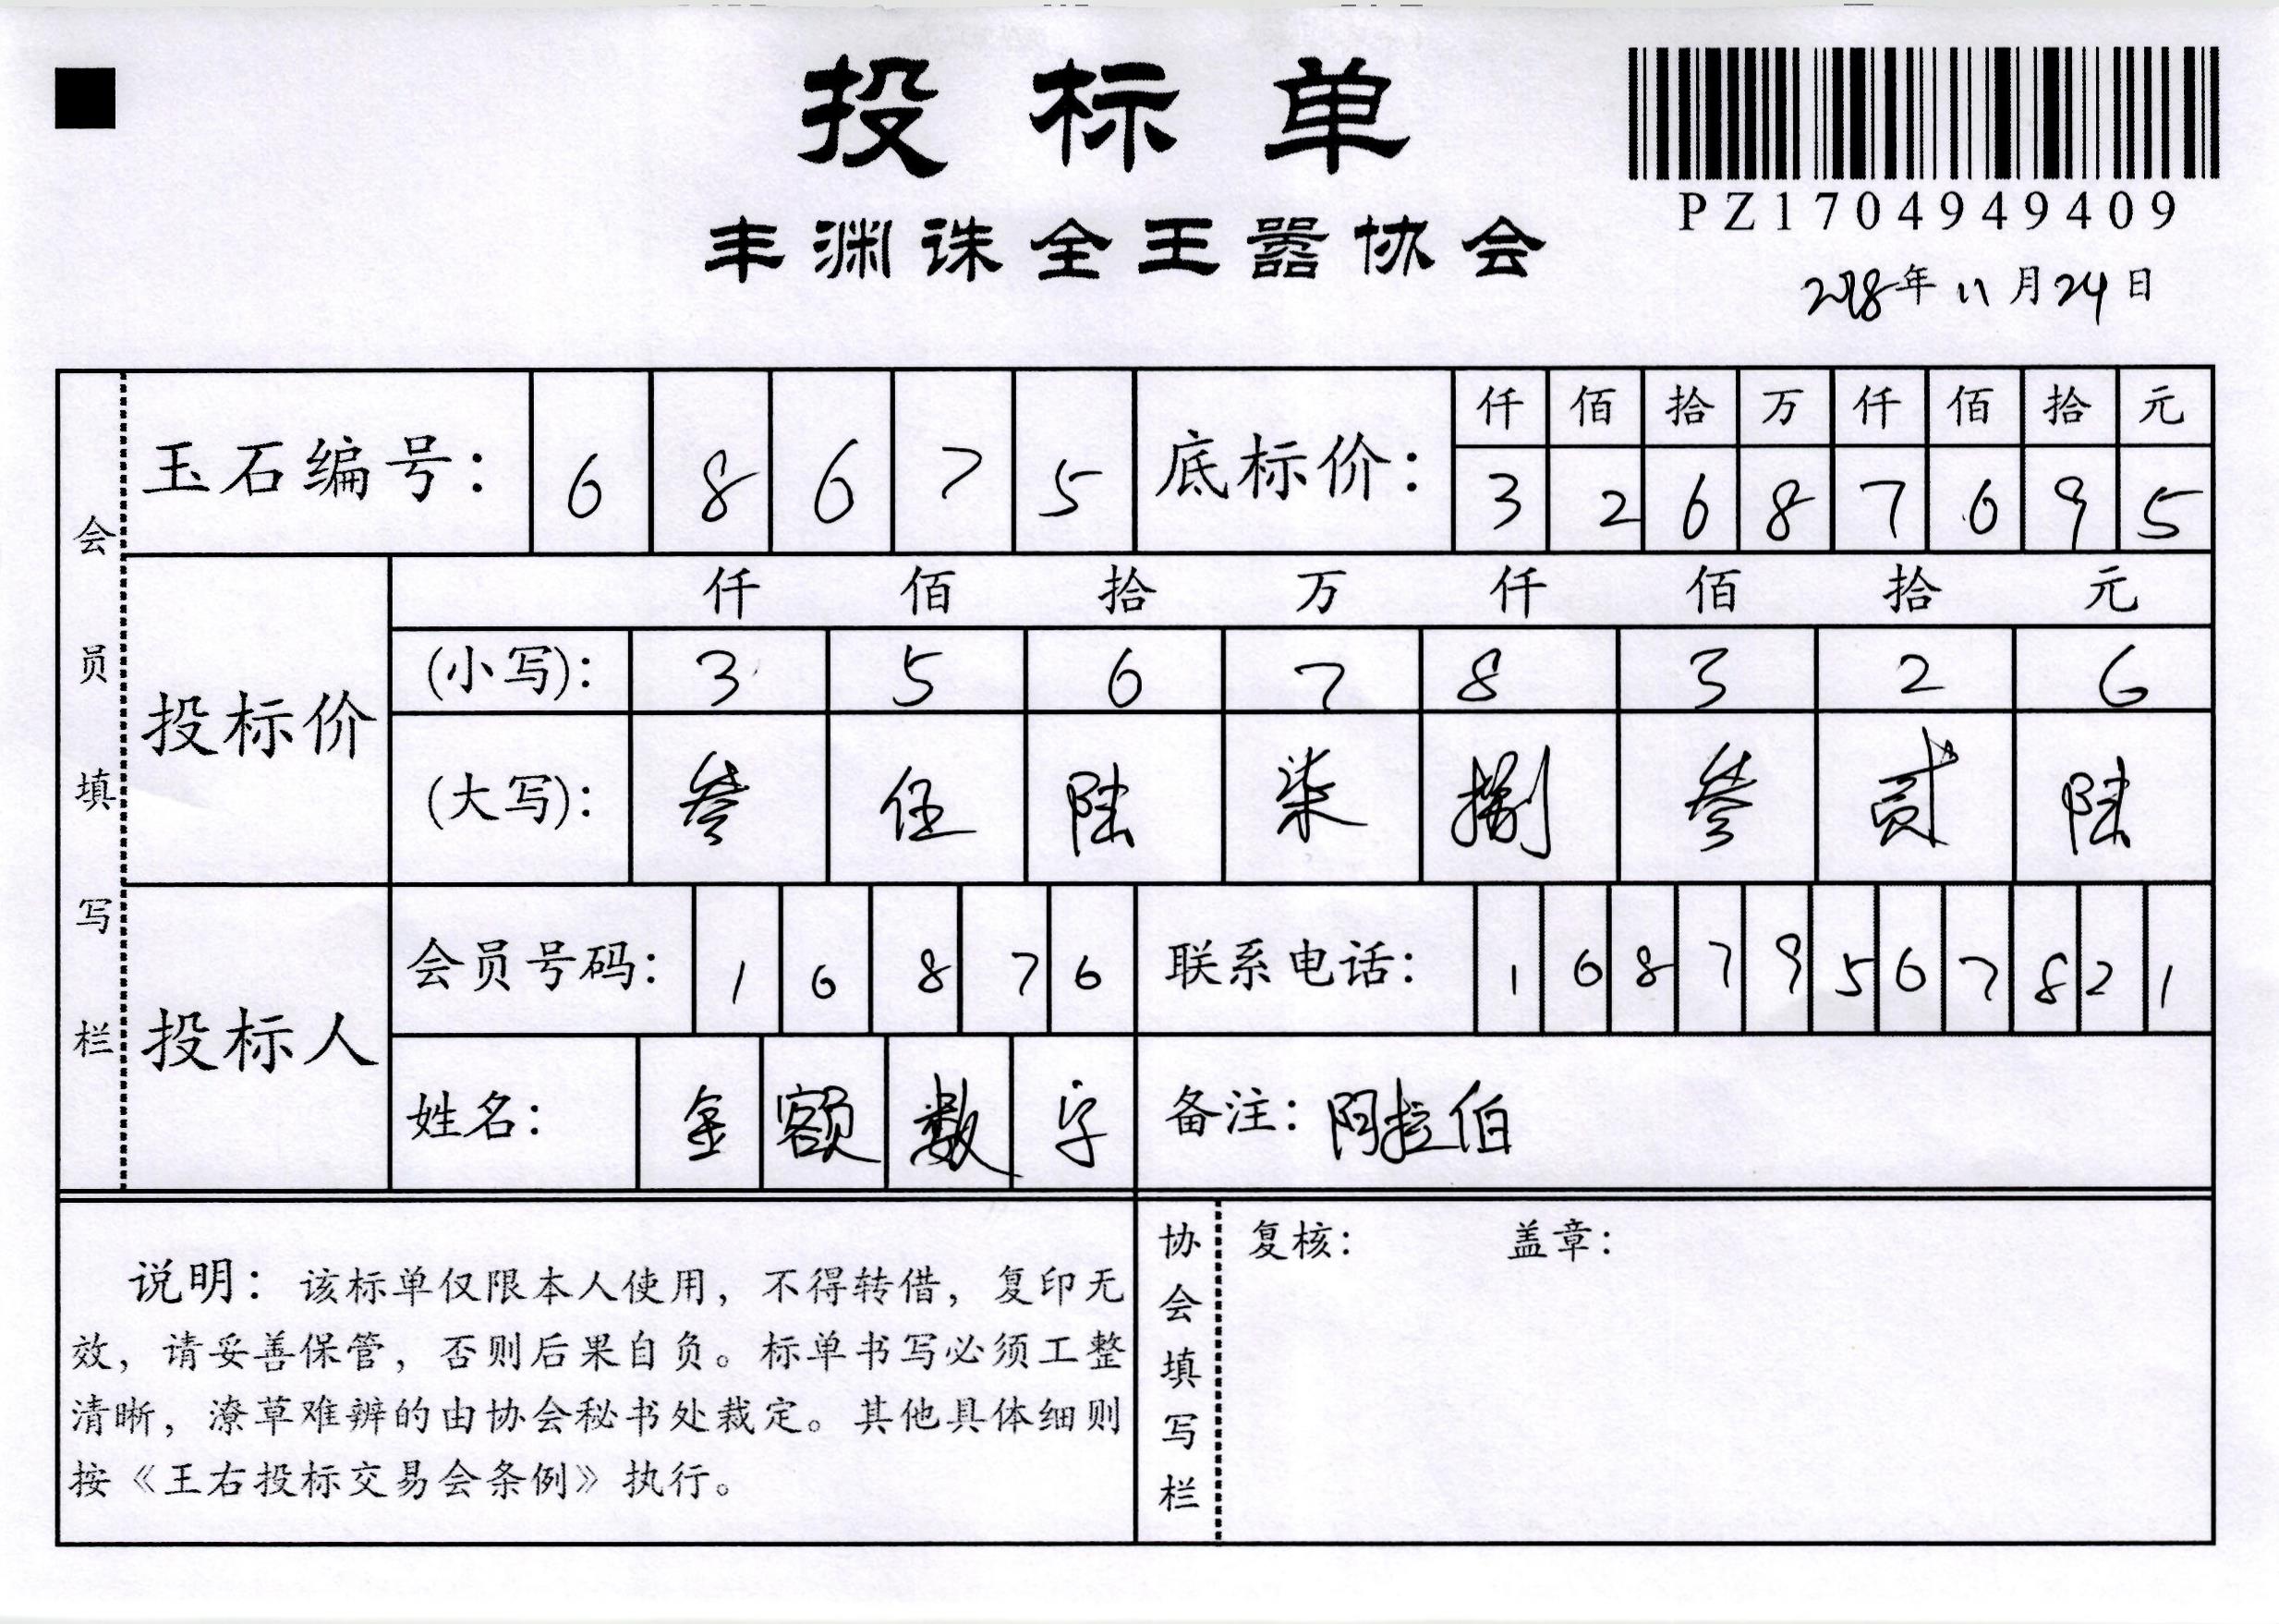 投标单
PZ1704949409
丰渊诛全王嚣协会
2018年11月24日
会员填写栏
玉石编号： 6 8 6 7 5
底标价： 仟 佰 拾 万 仟 佰 拾 元
3 2 6 8 7 6 9 5
投标价
仟 佰 拾 万 仟 佰 拾 元
(小写)： 3 5 6 7 8 3 2 6
(大写)： 叁 伍 陆 柒 捌 叁 贰 陆
投标人
会员号码： 1 6 8 7 6
联系电话： 1 6 8 7 9 5 6 7 8 2 1
姓名： 金 额 数 字
备注：阿拉伯
说明：该标单仅限本人使用，不得转借，复印无
效，请妥善保管，否则后果自负。标单书写必须工整
清晰，潦草难辨的由协会秘书处裁定。其他具体细则
按《王右投标交易会条例》执行。
协会填写栏
复核： 盖章：